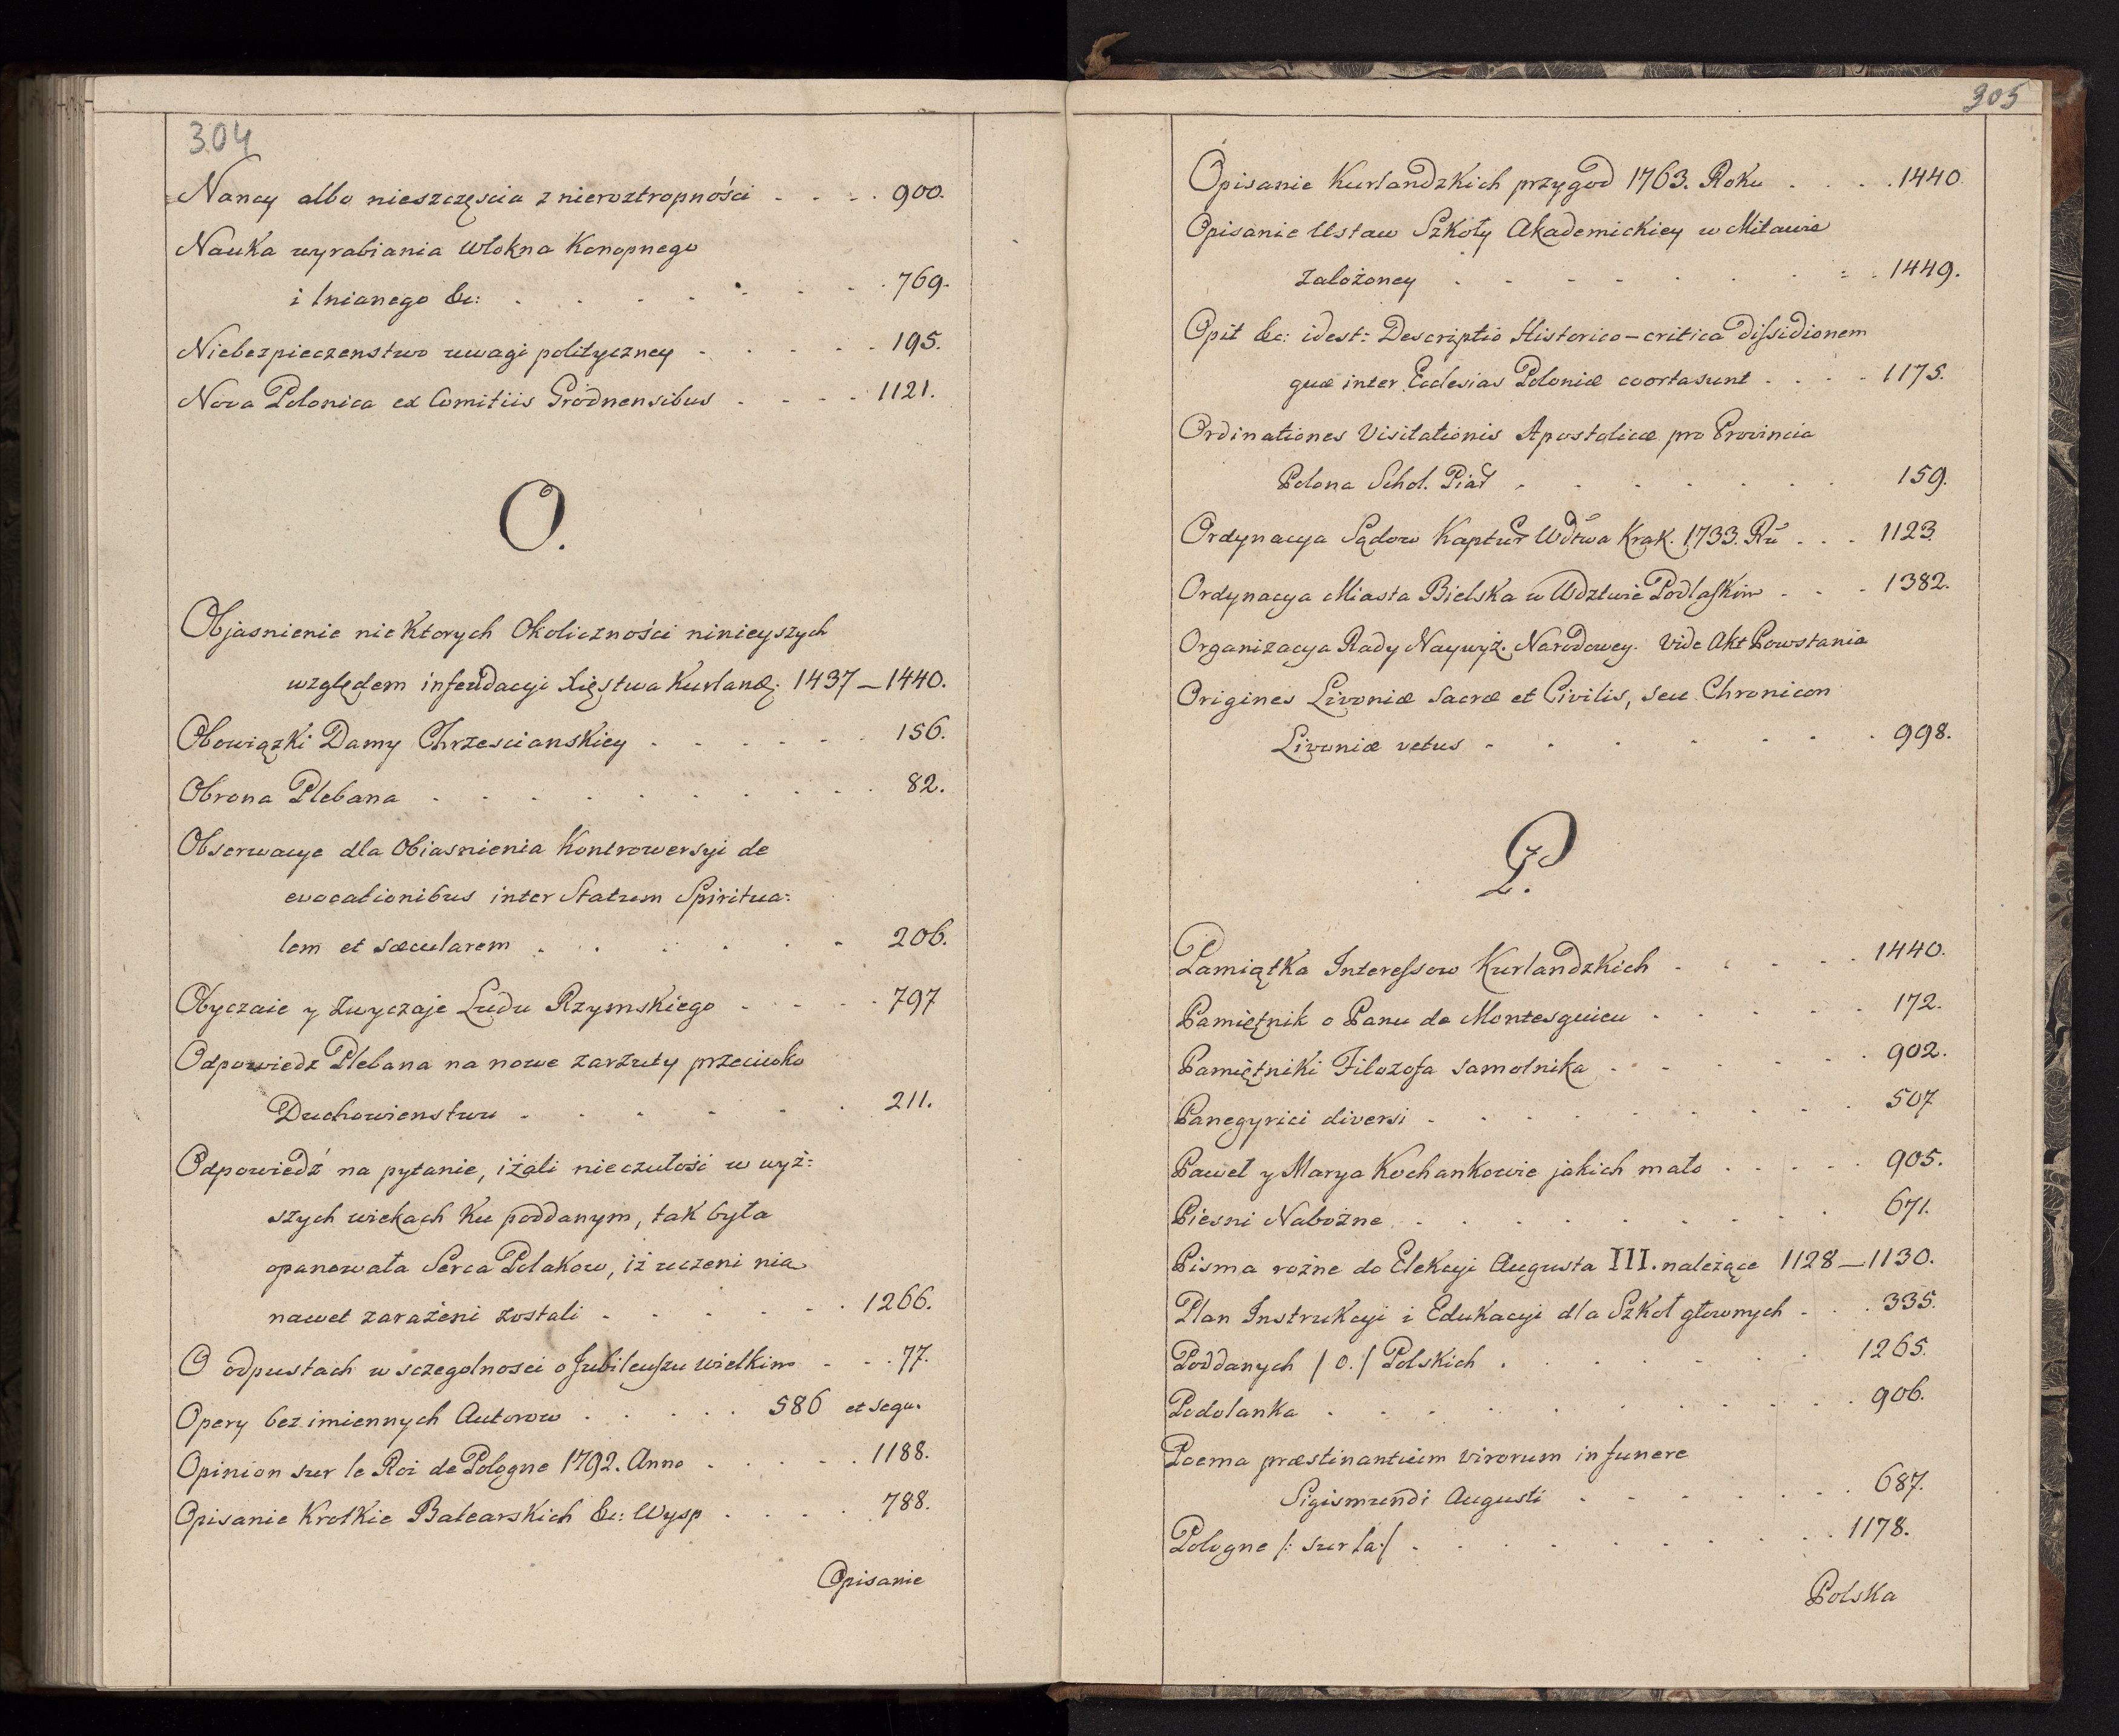 304
Nancy albo nieszczęscia z nieroztropności . . . . 900.
Nauka wyrabiania Włokna Konopnego
i lnianego &c: . . . . . . . 769.
Niebezpieczenstwo uwagi polityczney . . . . . 195.
Nova Polonica ex Comitiis Grodnensibus . . . . 1121.
O.
Objasnienie niektorych Okoliczności ninieyszych
względem infeudacyi Xięstwa Kurland: 1437–1440.
Obowiązki Damy Chrzescianskiey . . . . . . 156.
Obrona Plebana . . . . . . . . . 82.
Obserwacye dla Obiasnienia Kontrowersyi de
evocationibus inter Statum Spiritua:
lem et sæcularem . . . . . . 206.
Obyczaie y zwyczaje Ludu Rzymskiego . . . . . 797
Odpowiedz Plebana na nowe zarzuty przeciwko
Duchowienstwu . . . . . . 211.
Odpowiedź na pytanie, iżali nieczułość w wyż:
szych wiekach ku poddanym, tak była
opanowała Serca Polakow, iż uczeni nią
nawet zarażeni zostali . . . . . . 1266.
O odpustach w sczegolnosci o Jubileuszu wielkim . . . 77.
Opery bezimiennych Autorow . . . . . 586 et sequ.
Opinion sur le Roi de Pologne 1792. Anno . . . . . 1188.
Opisanie Krotkie Balearskich &c: Wysp . . . . 788.
Opisanie
305
Opisanie Kurlandzkich przygod 1763. Roku . . . . 1440.
Opisanie Ustaw Szkoły Akademickiey w Mitawie
założoney . . . . . . . . 1449.
Opit &c: idest: Descriptio Historico–critica dissidionem
quæ inter Ecclesias Poloniæ coorta sunt . . . . 1175.
Ordinationes Visitationis Apostolicæ pro Provincia
Polona Schol. Piar . . . . . . . 159.
Ordynacya Sądow Kaptur Wdtwa Krak. 1733. Ru . . . 1123.
Ordynacya Miasta Bielska w Wdztwie Podlaskim . . . 1382.
Organizacya Rady Naywyż. Narodowey. vide Akt Powstania
Origines Livoniæ sacræ et Civilis, seu Chronicon
Livoniæ vetus . . . . . . . 998.
P.
Pamiątka Interessow Kurlandzkich . . . . . 1440.
Pamiętnik o Panu de Montesquieu . . . . . 172.
Pamiętniki Filozofa samotnika . . . . . . 902.
Panegyrici diversi . . . . . . . . 507
Paweł y Marya Kochankowie jakich mało . . . . . 905.
Piesni Nabożne . . . . . . . . 671.
Pisma rożne do Elekcyi Augusta III. należące 1128–1130.
Plan Instrukcyi i Edukacyi dla Szkoł głownych . . . 335.
Poddanych /o./ Polskich . . . . . . . 1265.
Podolanka . . . . . . . . . 906.
Poema præstinantuim virorum in funere
Sigismundi Augusti . . . . . . 687.
Pologne /: sur la:/ . . . . . . . . 1178.
Polska